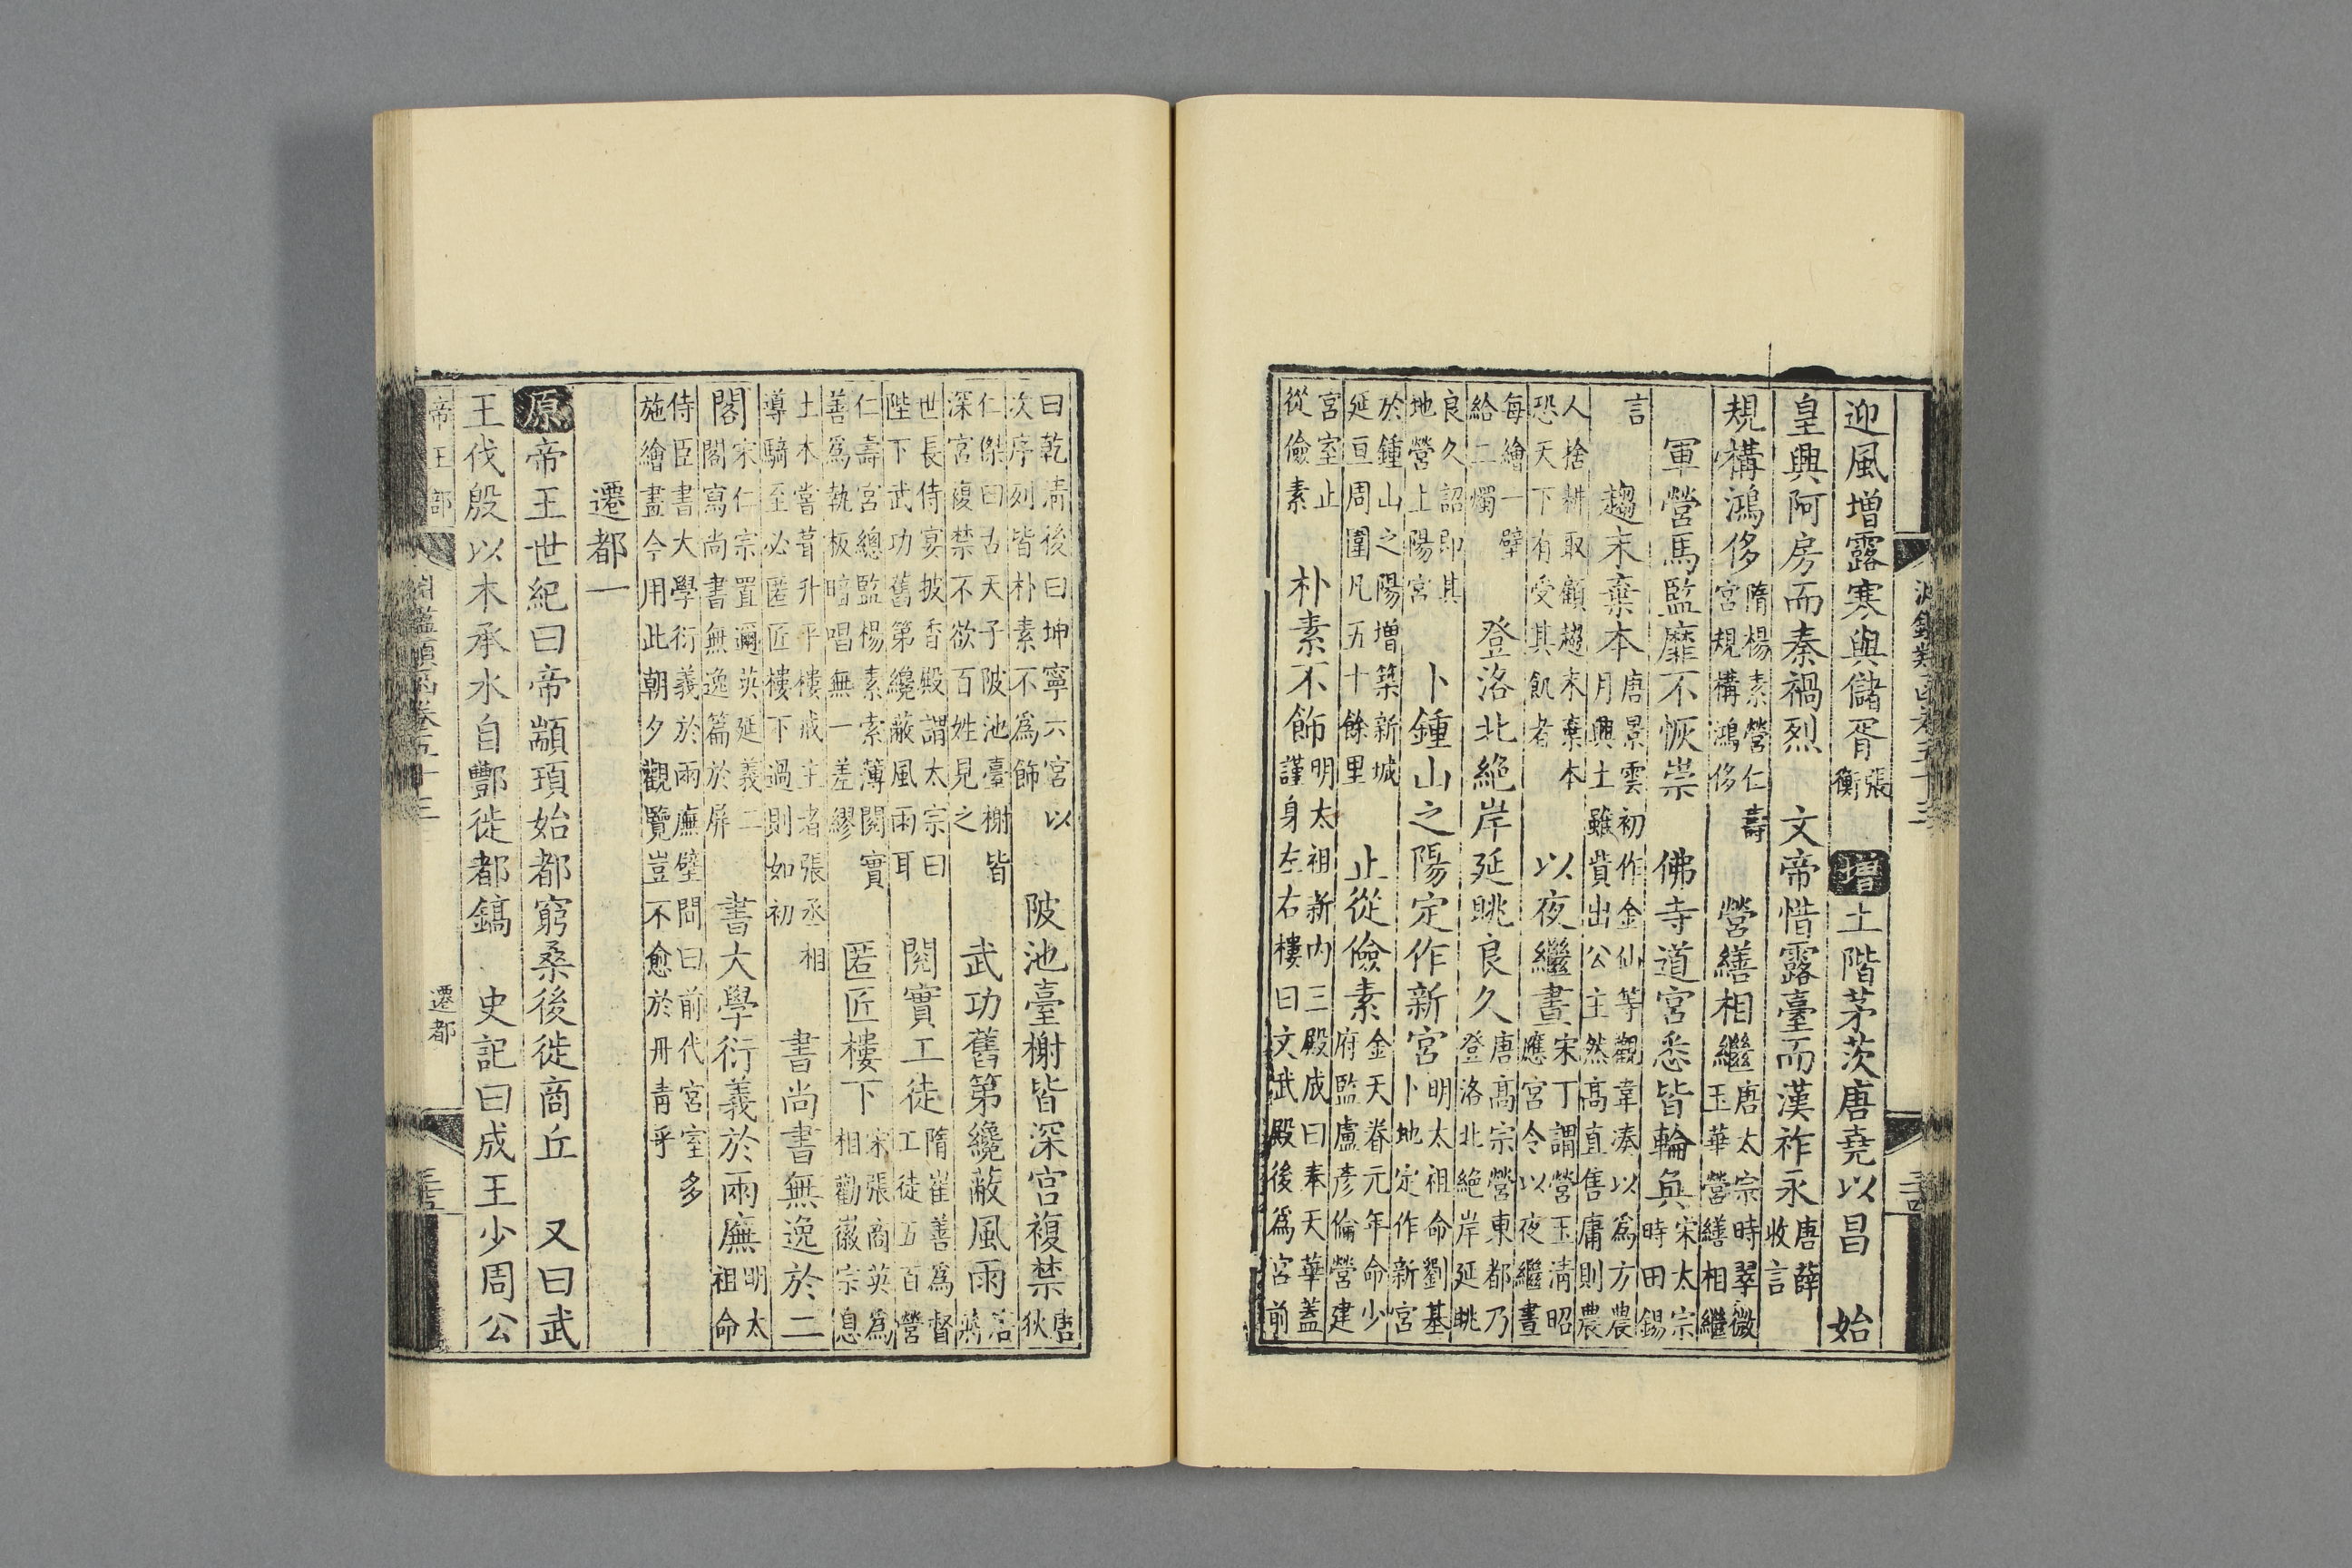 迎風増露寒與儲胥張衡　増土階茅茨唐堯以昌　始
皇興阿房而秦禍烈　文帝惜露臺而漢祚永唐薛收言
規構鴻侈隋楊素營仁壽宮規構鴻侈　營繕相繼唐太宗時翠微玉華營繕相繼
軍營馬監靡不恢崇　佛寺道宮悉皆輪奐宋太宗時田錫
言　趨末棄本唐景雲初作金仙等觀韋湊以爲方農月興土雖貲出公主然高直售庸則農
人捨耕取顧趨末棄本恐天下有受其飢者　以夜繼晝宋丁謂營玉清昭應宮令以夜繼晝
每繪一壁給二燭　登洛北絶岸延眺良久唐高宗營東都乃登洛北絶岸延眺
良久詔即其地營上陽宮　卜鍾山之陽定作新宮明太祖命劉基卜地定作新宮
於鍾山之陽増築新城延亘周圍凡五十餘里　止從儉素金天眷元年命少府監盧彦倫營建
宮室止從儉素　朴素不飾明太祖新内三殿成曰奉天華蓋謹身左右樓曰文武殿後爲宮前
曰乾清後曰坤寧六宮以次序列皆朴素不爲飾　陂池臺榭皆深宮複禁唐狄
仁傑曰古天子陂池臺榭皆深宮複禁不欲百姓見之　武功舊第纔蔽風雨唐蘇
世長侍宴披香殿謂太宗曰陛下武功舊第纔蔽風雨耳　閱實工徒隋崔善爲督工徒五百營
仁壽宮總監楊素索簿閱實善爲執板暗唱無一差繆　匿匠樓下宋張商英爲相勸徽宗息
土木嘗葺升平樓戒主者張丞相導騎至必匿匠樓下過則如初　書尚書無逸於二
閣宋仁宗置邇英延義二閣寫尚書無逸篇於屏　書大學衍義於兩廡明太祖命
侍臣書大學衍義於兩廡壁間曰前代宮室多施繪畫今用此朝夕觀覽豈不愈於丹青乎
遷都一
原帝王世紀曰帝顓頊始都窮桑後徙商丘　又曰武
王伐殷以木承水自酆徙都鎬　史記曰成王少周公
帝王部　淵鑑類函卷五十三　遷都